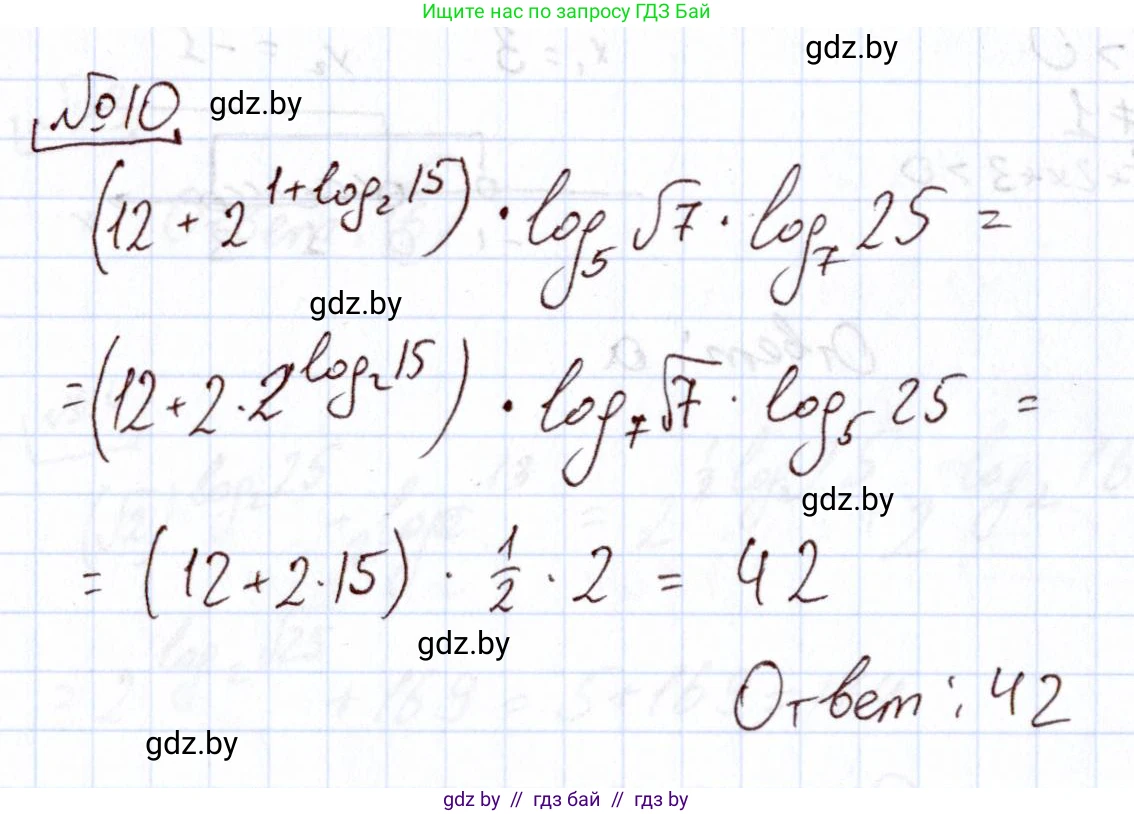 Ищите нас по запросу ГДЗ Бай
gdz.by
№10
gdz.by
(12 + 2^{1+log₂15}) · log₅√7 · log₇25 =
gdz.by
= (12 + 2 · 2^{log₂15}) · log₇√7 · log₅25 =
gdz.by
= (12 + 2 · 15) · 1/2 · 2 = 42
gdz.by
Ответ: 42
gdz.by
gdz by // гдз бай // гдз by